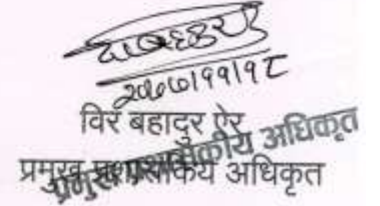 २०७७।११।१८
विर बहादुर ऐर
प्रमुख प्रशासकिय अधिकृत
प्रमुख प्रशासकीय अधिकृत